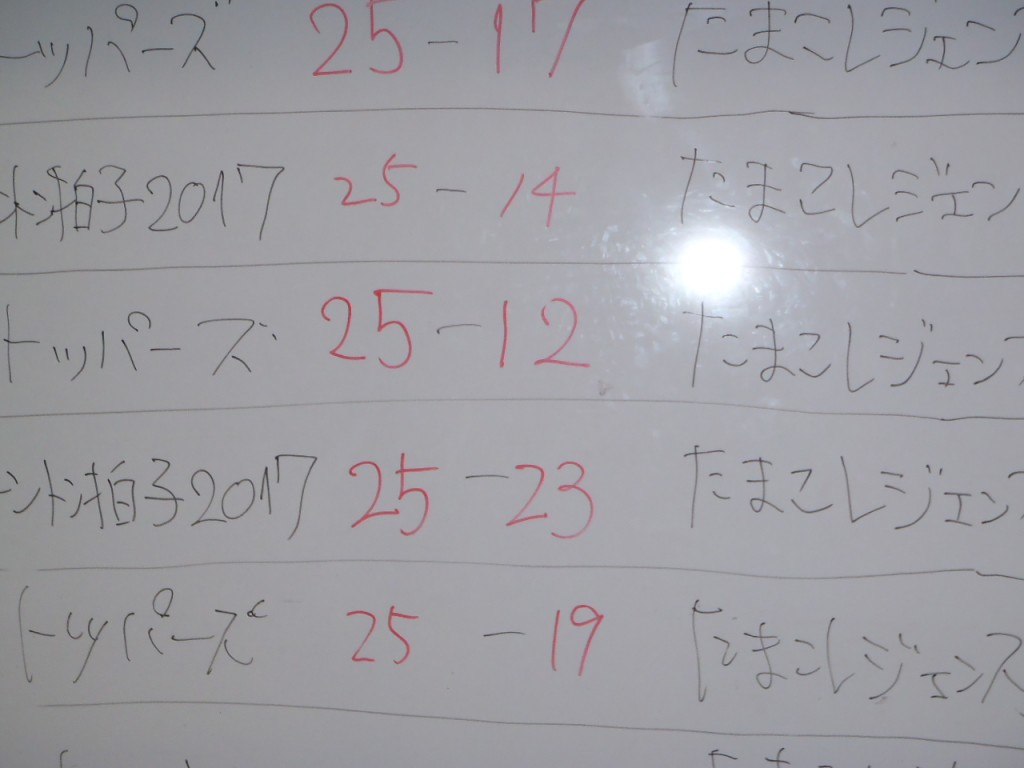 ーッパーズ 25-17 たまこレジェン
拍子2017 25-14 たまこレジェン
トッパーズ 25-12 たまこレジェンス
ントン拍子2017 25-23 たまこレジェンス
トッパーズ 25-19 たまこレジェンス